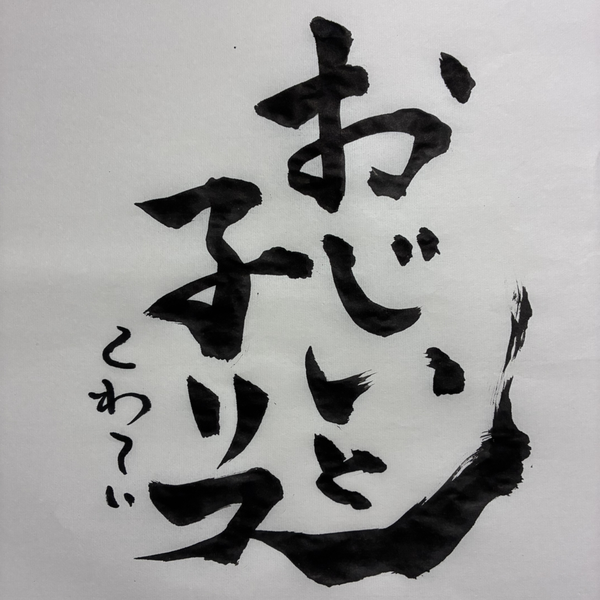 おじいと
子リス
こわてい